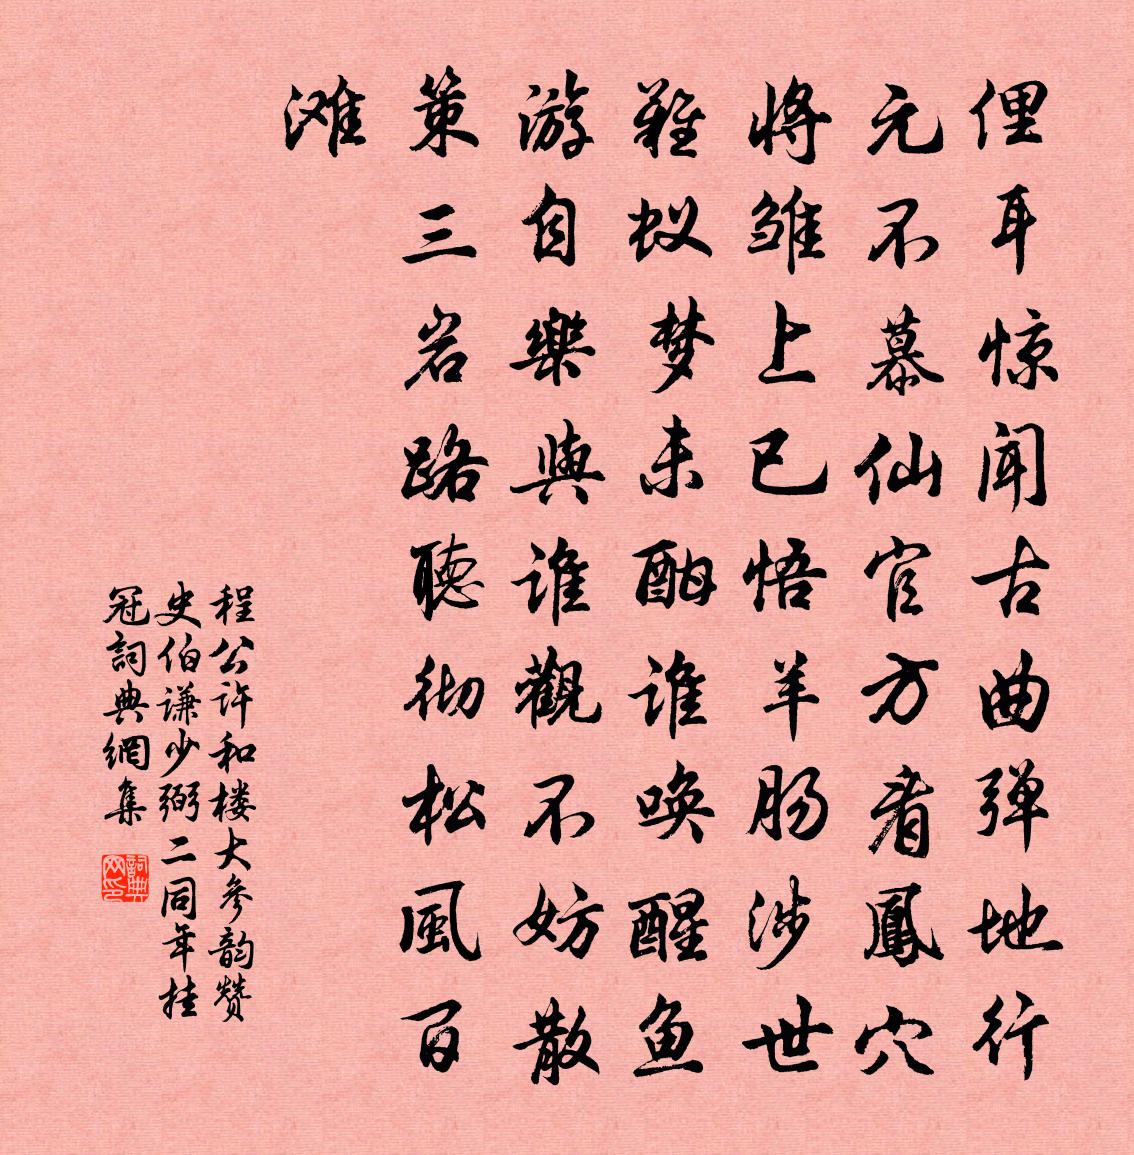 俚耳惊闻古曲弹地行
元不慕仙官方看鳳穴
将雏上已悟羊肠涉世
難蚁梦未酣谁唤醒鱼
游自樂與谁觀不妨散
策三岩路聽彻松風百
滩
程公许和楼大參韵赞
史伯谦少弼二同年挂
冠詞典網集
詞典
网印